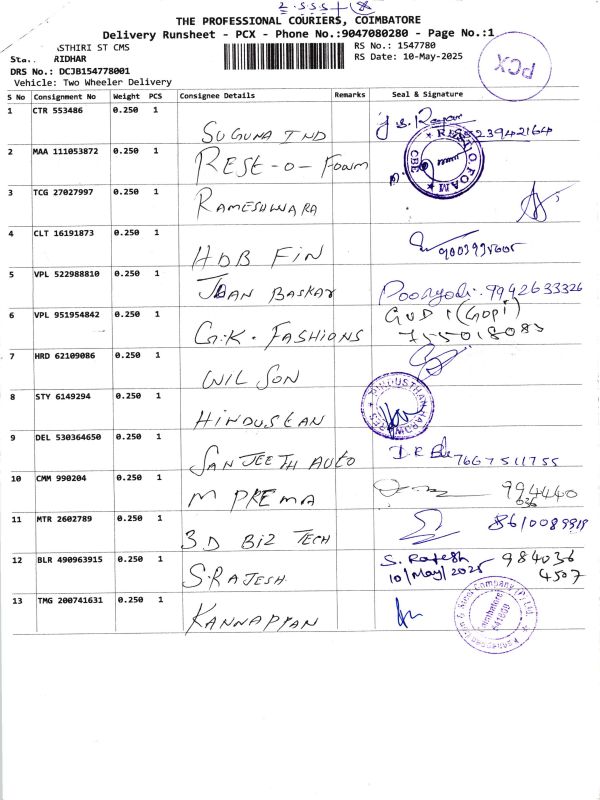 2.555 +
THE PROFESSIONAL COURIERS, COIMBATORE
Delivery Runsheet - PCX - Phone No.:9047080280 - Page No.:1
STHIRI ST CMS
RIDHAR
RS No.: 1547780
RS Date: 10-May-2025
PCX
DRS No.: DCJB154778001
Vehicle: Two Wheeler Delivery
S No Consignment No Weight PCS Consignee Details Remarks Seal & Signature
1 CTR 553486 0.250 1 SUGUNA IND
2 MAA 111053872 0.250 1 REST-O-FOAM RESTIO.FOAM CBE
3 TCG 27027997 0.250 1 RAMESHWARA
4 CLT 16191873 0.250 1 HDB FIN
5 VPL 522988810 0.250 1 JBAN BASKAR 9942633326
6 VPL 951954842 0.250 1 G.K. FASHIONS GVD 1 (GOPI)
7 HRD 62109086 0.250 1 WILSON
8 STY 6149294 0.250 1 HINDUSTAN HINDUSTHAN
9 DEL 530364650 0.250 1 SANJEETH AUTO 7667511755
10 CMM 990204 0.250 1 M PREMA 994440
636
11 MTR 2602789 0.250 1 3D BIZ TECH
12 BLR 490963915 0.250 1 S.RAJESH S. Rajesh 984036
10/May/2025 4507
13 TMG 200741631 0.250 1 KANNAPPAN Kannappan Iron & Steel Company (P) Ltd. Coimbatore